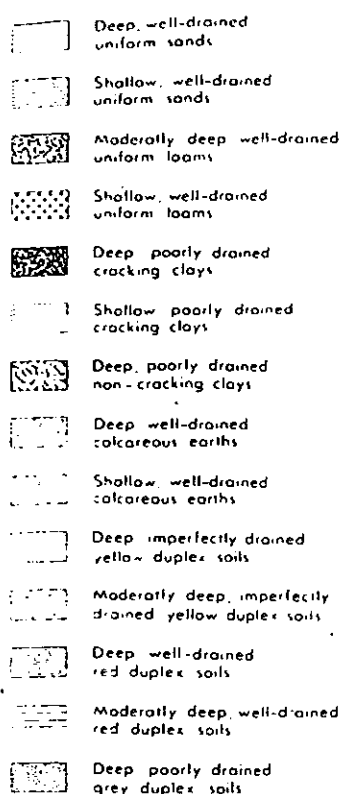 Deep, well-drained
uniform sands
Shallow, well-drained
uniform sands
Moderatly deep well-drained
uniform loams
Shallow, well-drained
uniform loams
Deep poorly drained
cracking clays
Shallow poorly drained
cracking clays
Deep, poorly drained
non-cracking clays
Deep well-drained
calcareous earths
Shallow, well-drained
calcareous earths
Deep imperfectly drained
yellow duplex soils
Moderatly deep, imperfectly
drained yellow duplex soils
Deep well-drained
red duplex soils
Moderatly deep, well-drained
red duplex soils
Deep poorly drained
grey duplex soils